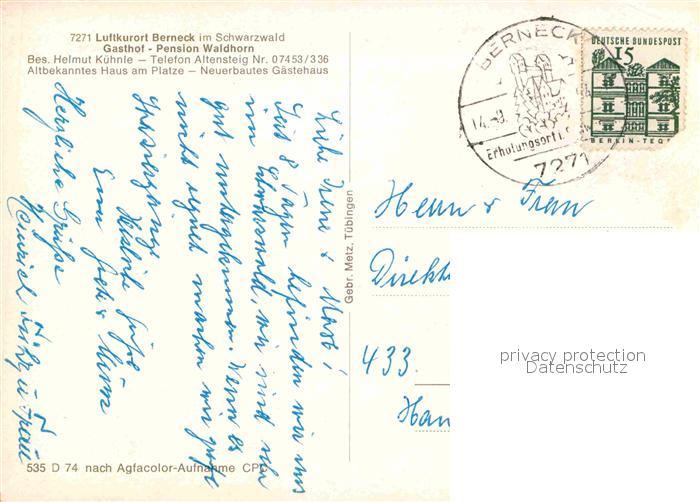 7271 Luftkurort Berneck im Schwarzwald
Gasthof - Pension Waldhorn
Bes. Helmut Kühnle — Telefon Altensteig Nr. 07453/336
Altbekanntes Haus am Platze — Neuerbautes Gästehaus
BERNECK
14.-9.
Erholungsort i.
7271
DEUTSCHE BUNDESPOST
15
BERLIN-TEG
Liebe Irene &
Seit 8 Tagen befinden wir uns
im Schwarzwald, wir sind sehr
gut untergekommen. Wenn es
nicht regnet machen wir große
Spaziergänge.
Herzliche Grüße
Heinrich u Frau
Gebr. Metz, Tübingen
Herrn & Frau
Direkt
433.
Han
privacy protection
Datenschutz
535 D 74 nach Agfacolor-Aufnahme CPC